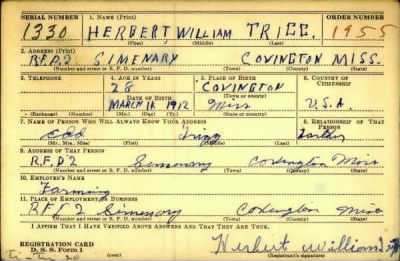 SERIAL NUMBER 1. NAME (Print) ORDER NUMBER
1330 HERBERT WILLIAM TRIGG. 1955
(First) (Middle) (Last)
2. ADDRESS (Print)
R.F.D.2 SIMENARY COVINGTON MISS.
(Number and street or R. F. D. number) (Town) (County) (State)
3. TELEPHONE 4. AGE IN YEARS 5. PLACE OF BIRTH 6. COUNTRY OF CITIZENSHIP
28 COVINGTON
DATE OF BIRTH (Town or county)
MARCH 1912 Miss U.S.A.
(Exchange) (Number) (Mo.) (Day) (Yr.) (State or country)
7. NAME OF PERSON WHO WILL ALWAYS KNOW YOUR ADDRESS 8. RELATIONSHIP OF THAT PERSON
Trigg
(Mr., Mrs., Miss) (First) (Middle) (Last)
9. ADDRESS OF THAT PERSON
R.F.D2 Simenary Covington Miss
(Number and street or R. F. D. number) (Town) (County) (State)
10. EMPLOYER'S NAME
Farming
11. PLACE OF EMPLOYMENT OR BUSINESS
R.F.D 2 Simenary Covington Miss
(Number and street or R. F. D. number) (Town) (County) (State)
I AFFIRM THAT I HAVE VERIFIED ABOVE ANSWERS AND THAT THEY ARE TRUE.
REGISTRATION CARD
D. S. S. Form 1 Herbert William
(Registrant's signature)